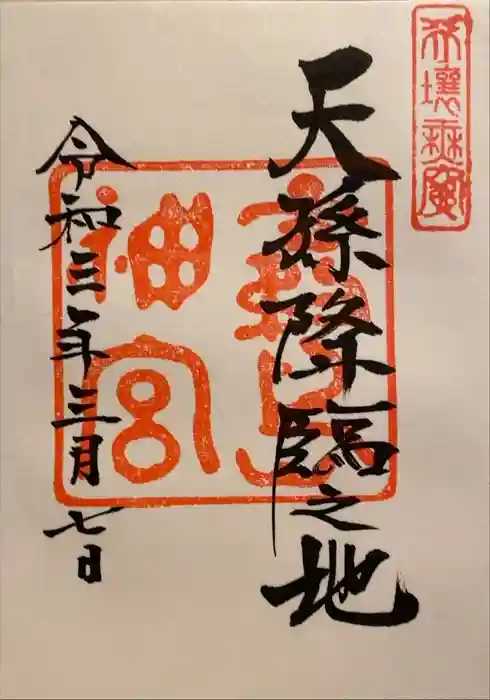 天壤無窮
天孫降臨之地
神宮
令和三年三月七日